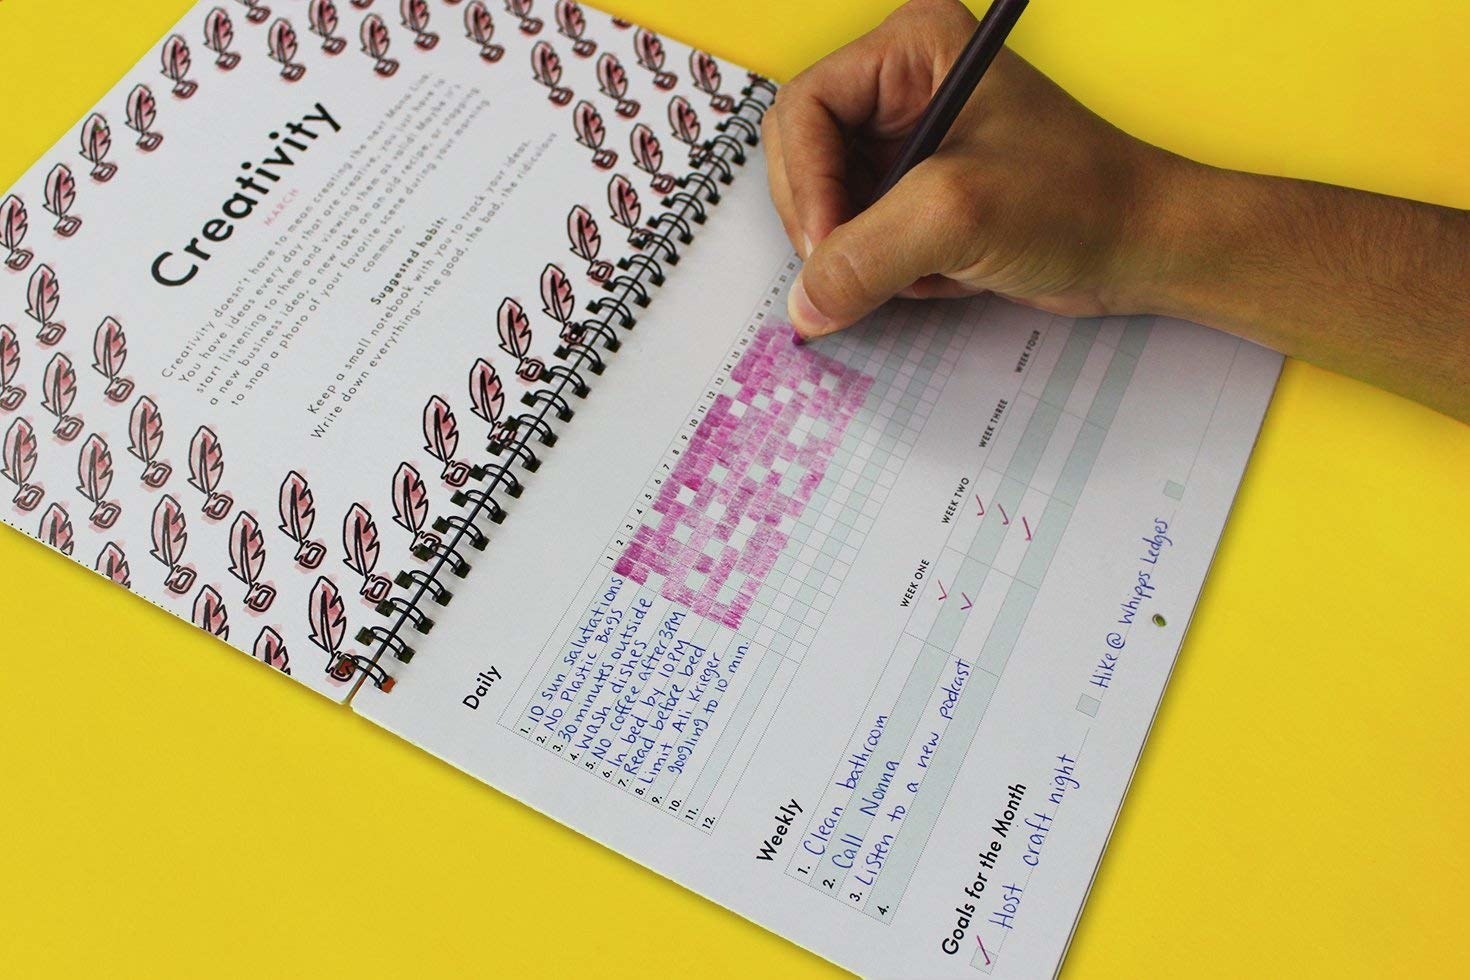 Creativity
MARCH
Creativity doesn't have to mean creating the next Mona Lisa.
You have ideas every day that are creative, you just have to
start listening to them and viewing them as valid. Maybe it's
a new business idea, a new take on an old recipe, or stopping
to snap a photo of your favorite scene during your morning
commute.
Suggested habit:
Keep a small notebook with you to track your ideas.
Write down everything- the good, the bad, the ridiculous
Daily
1 2 3 4 5 6 7 8 9 10 11 12 13 14 15 16 17 18 19 20 21 22
1. 10 sun salutations
2. No Plastic Bags
3. 30 minutes outside
4. Wash dishes
5. No coffee after 3PM
6. In bed by 10PM
7. Read before bed
8. Limit Ali Krieger
9. googling to 10 min.
10.
11.
12.
Weekly
WEEK ONE WEEK TWO WEEK THREE WEEK FOUR
1. Clean bathroom
2. Call Nonna
3. Listen to a new podcast
4.
Goals for the Month
Host craft night
Hike @ Whipps Ledges